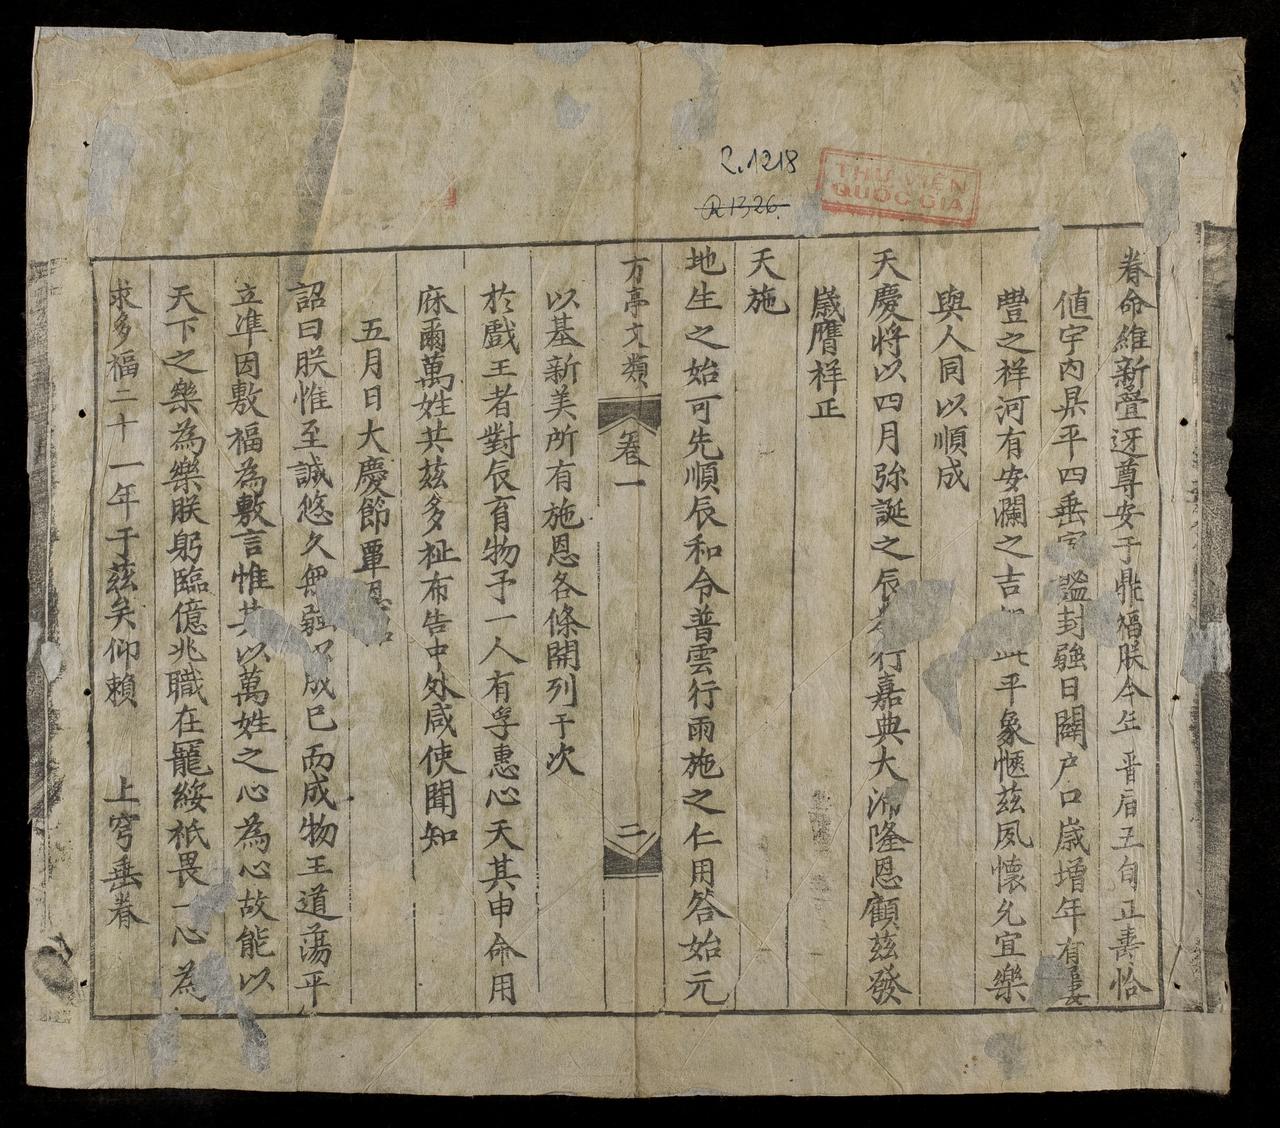 R.1218
R1326
THƯ VIỆN
QUỐC GIA
眷命維新疊迓尊安于鼎福朕今年晋届五旬正壽恰
值宇内昇平四垂謐封疆日闢户口歳增年有屢
豐之祥河有安瀾之吉此平象愜兹夙懷允宜樂
與人同以順成
天慶將以四月弥誕之辰行嘉典大沛隆恩顧兹發
歳膺祥正
天施
地生之始可先順辰和令普雲行雨施之仁用答始元
方亭文類
卷一
二
以基新美所有施恩各條開列于次
於戲王者對辰育物予一人有孚惠心天其申命用
庥爾萬姓共兹多祉布告中外咸使聞知
五月日大慶節覃恩
詔曰朕惟至誠悠久無疆以成已而成物王道蕩平
立準因敷福為敷言惟其以萬姓之心為心故能以
天下之樂為樂朕躬臨億兆職在寵綏祗畏一心為
求多福二十一年于兹矣仰賴 上穹垂眷